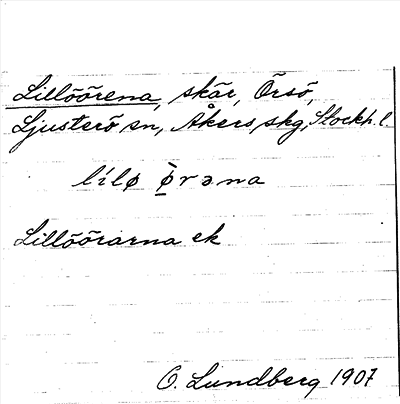 Lillöörena, skär, Örsö,
Ljusterö sn, Åkers skg, Stockh. l.
lílø ø̀rəna
Lillöörarna ek
O. Lundberg 1907